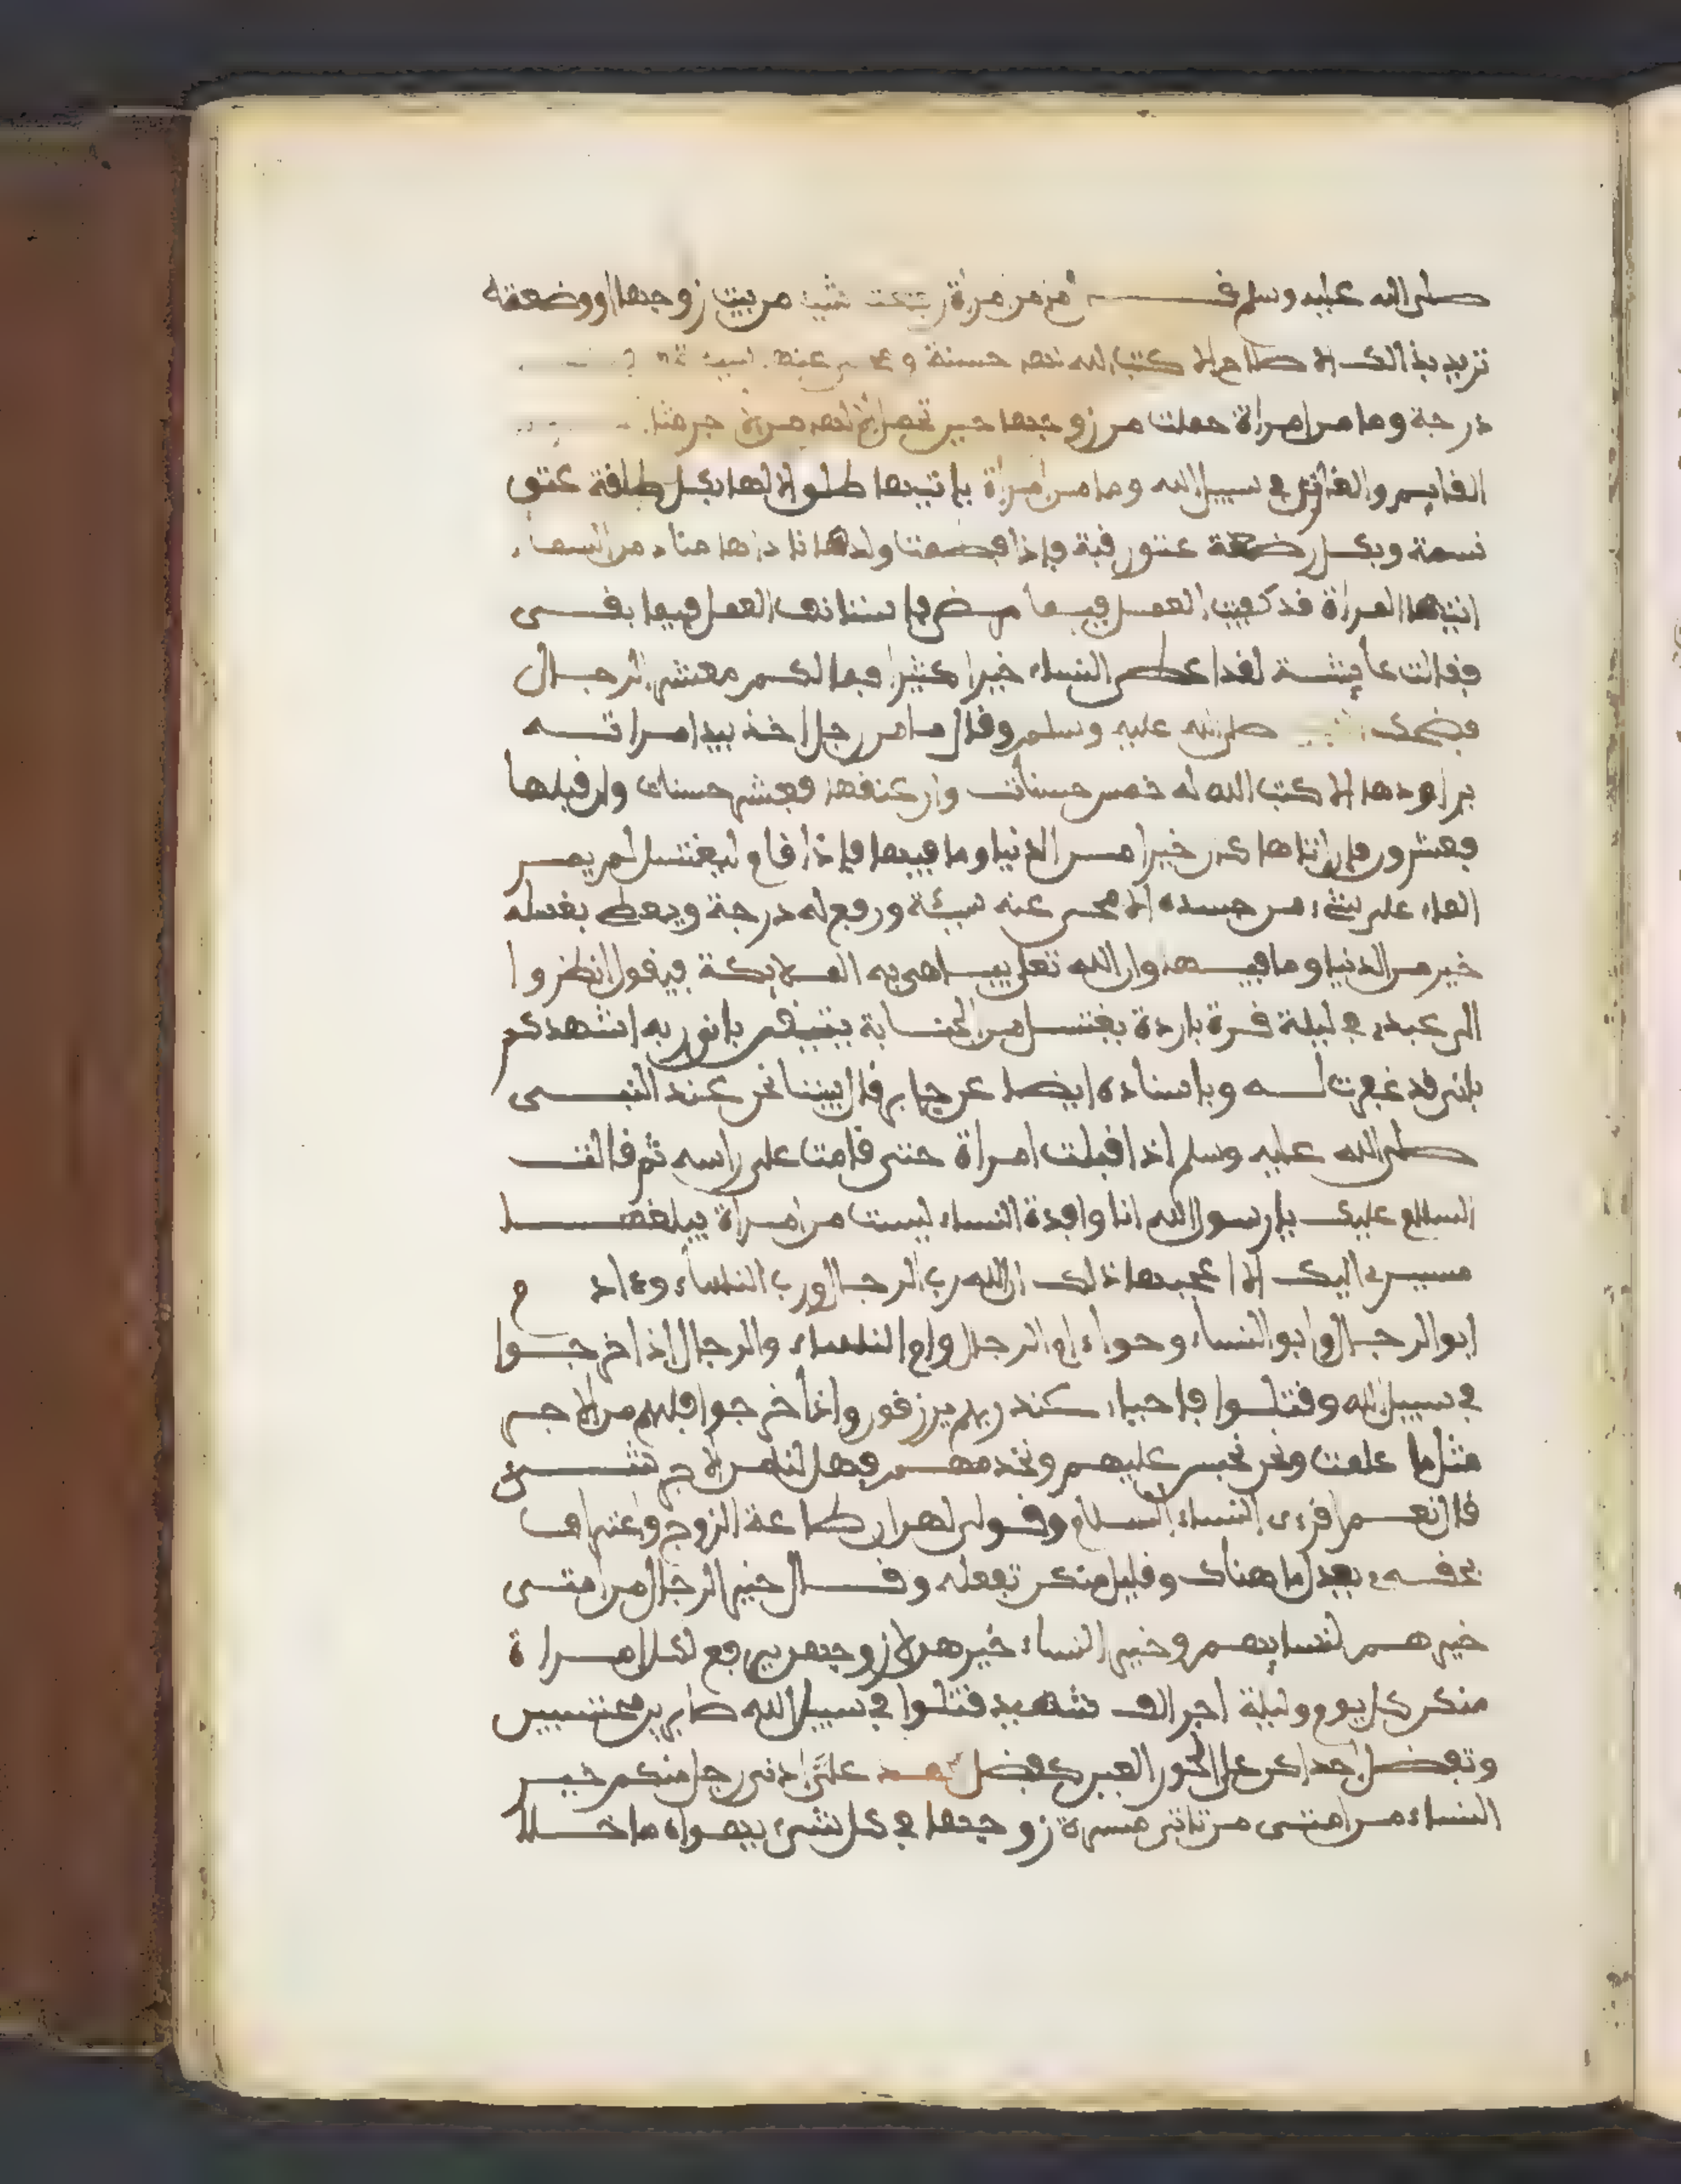 صلى الله عليه وسلم ما من امراة رفعت شيئا من بيت زوجها او وضعته
تريد بذالك الاصلاح الا كتب الله لها حسنة و عنها سيئة
درجة وما من امراة حملت من زوجها حين تحمل الا لها من الاجر مثل
القايم والغازي في سبيل الله وما من امراة ياتيها طلق الا لها بكل طلقة عتق
نسمة وبكل رضعة عتق رقبة فاذا فصمت ولدها ناداها مناد من السماء
ايتها المراة قد كفيت العمل فيما مضى فاستانفي العمل فيما بقى
فقالت عايشة لقد اعطى النساء خيرا كثيرا فما لكم معشر الرجال
فضحك صلى الله عليه وسلم وقال ما من رجل اخذ بيد امراته
يراودها الا كتب الله له خمس حسنات وان عنقها فعشر حسنات وان قبلها
فعشرون فان اتاها كان خيرا من الدنيا وما فيها فاذا قام ليغتسل لم يمر
الماء على شيء من جسده الا محى عنه سيئة ورفع له درجة ويعطى بغسله
خير من الدنيا وما فيها وان الله تعلى يباهي به الملايكة فيقول انظروا
الى عبدي في ليلة قرة باردة يغتسل من الجنابة يتيقن باني ربه اشهدكم
باني قد غفرت له وباسناده ايضا عن جابر قال بينا نحن عند النبي
صلى الله عليه وسلم اذ اقبلت امراة حتى قامت على راسه ثم قالت
السلام عليك يا رسول الله انا وافدة النساء ليست من امراة يبلغها
مسيري اليك الا اعجبها ذلك ان الله رب الرجال ورب النساء وءادم
ابو الرجال وابو النساء وحواء ام الرجال وام النساء والرجال اذا خرجوا
في سبيل الله وقتلوا فاحياء عند ربهم يرزقون واذا خرجوا فلهم من الاجر
مثل ما علمت ونحن نحبس عليهم ونخدمهم فهل لنا من الاجر شيء
قال نعم اقرءي النساء السلام وقولي لهن ان طاعة الزوج واعترافا
بحقه يعدل ما هناك وقليل منكن تفعله وقال خير الرجال من امتي
خيرهم لنسايهم وخير النساء خيرهن لازواجهن يرفع لكل امراة
منكن كل يوم وليلة اجر الف شهيد قتلوا في سبيل الله صابرين محتسبين
وتفضل احداكن على الحور العين كفضل محمد على ادنى رجل منكم خير
النساء من امتي من تاتي مسرة زوجها في كل شيء يهواه ما خلا